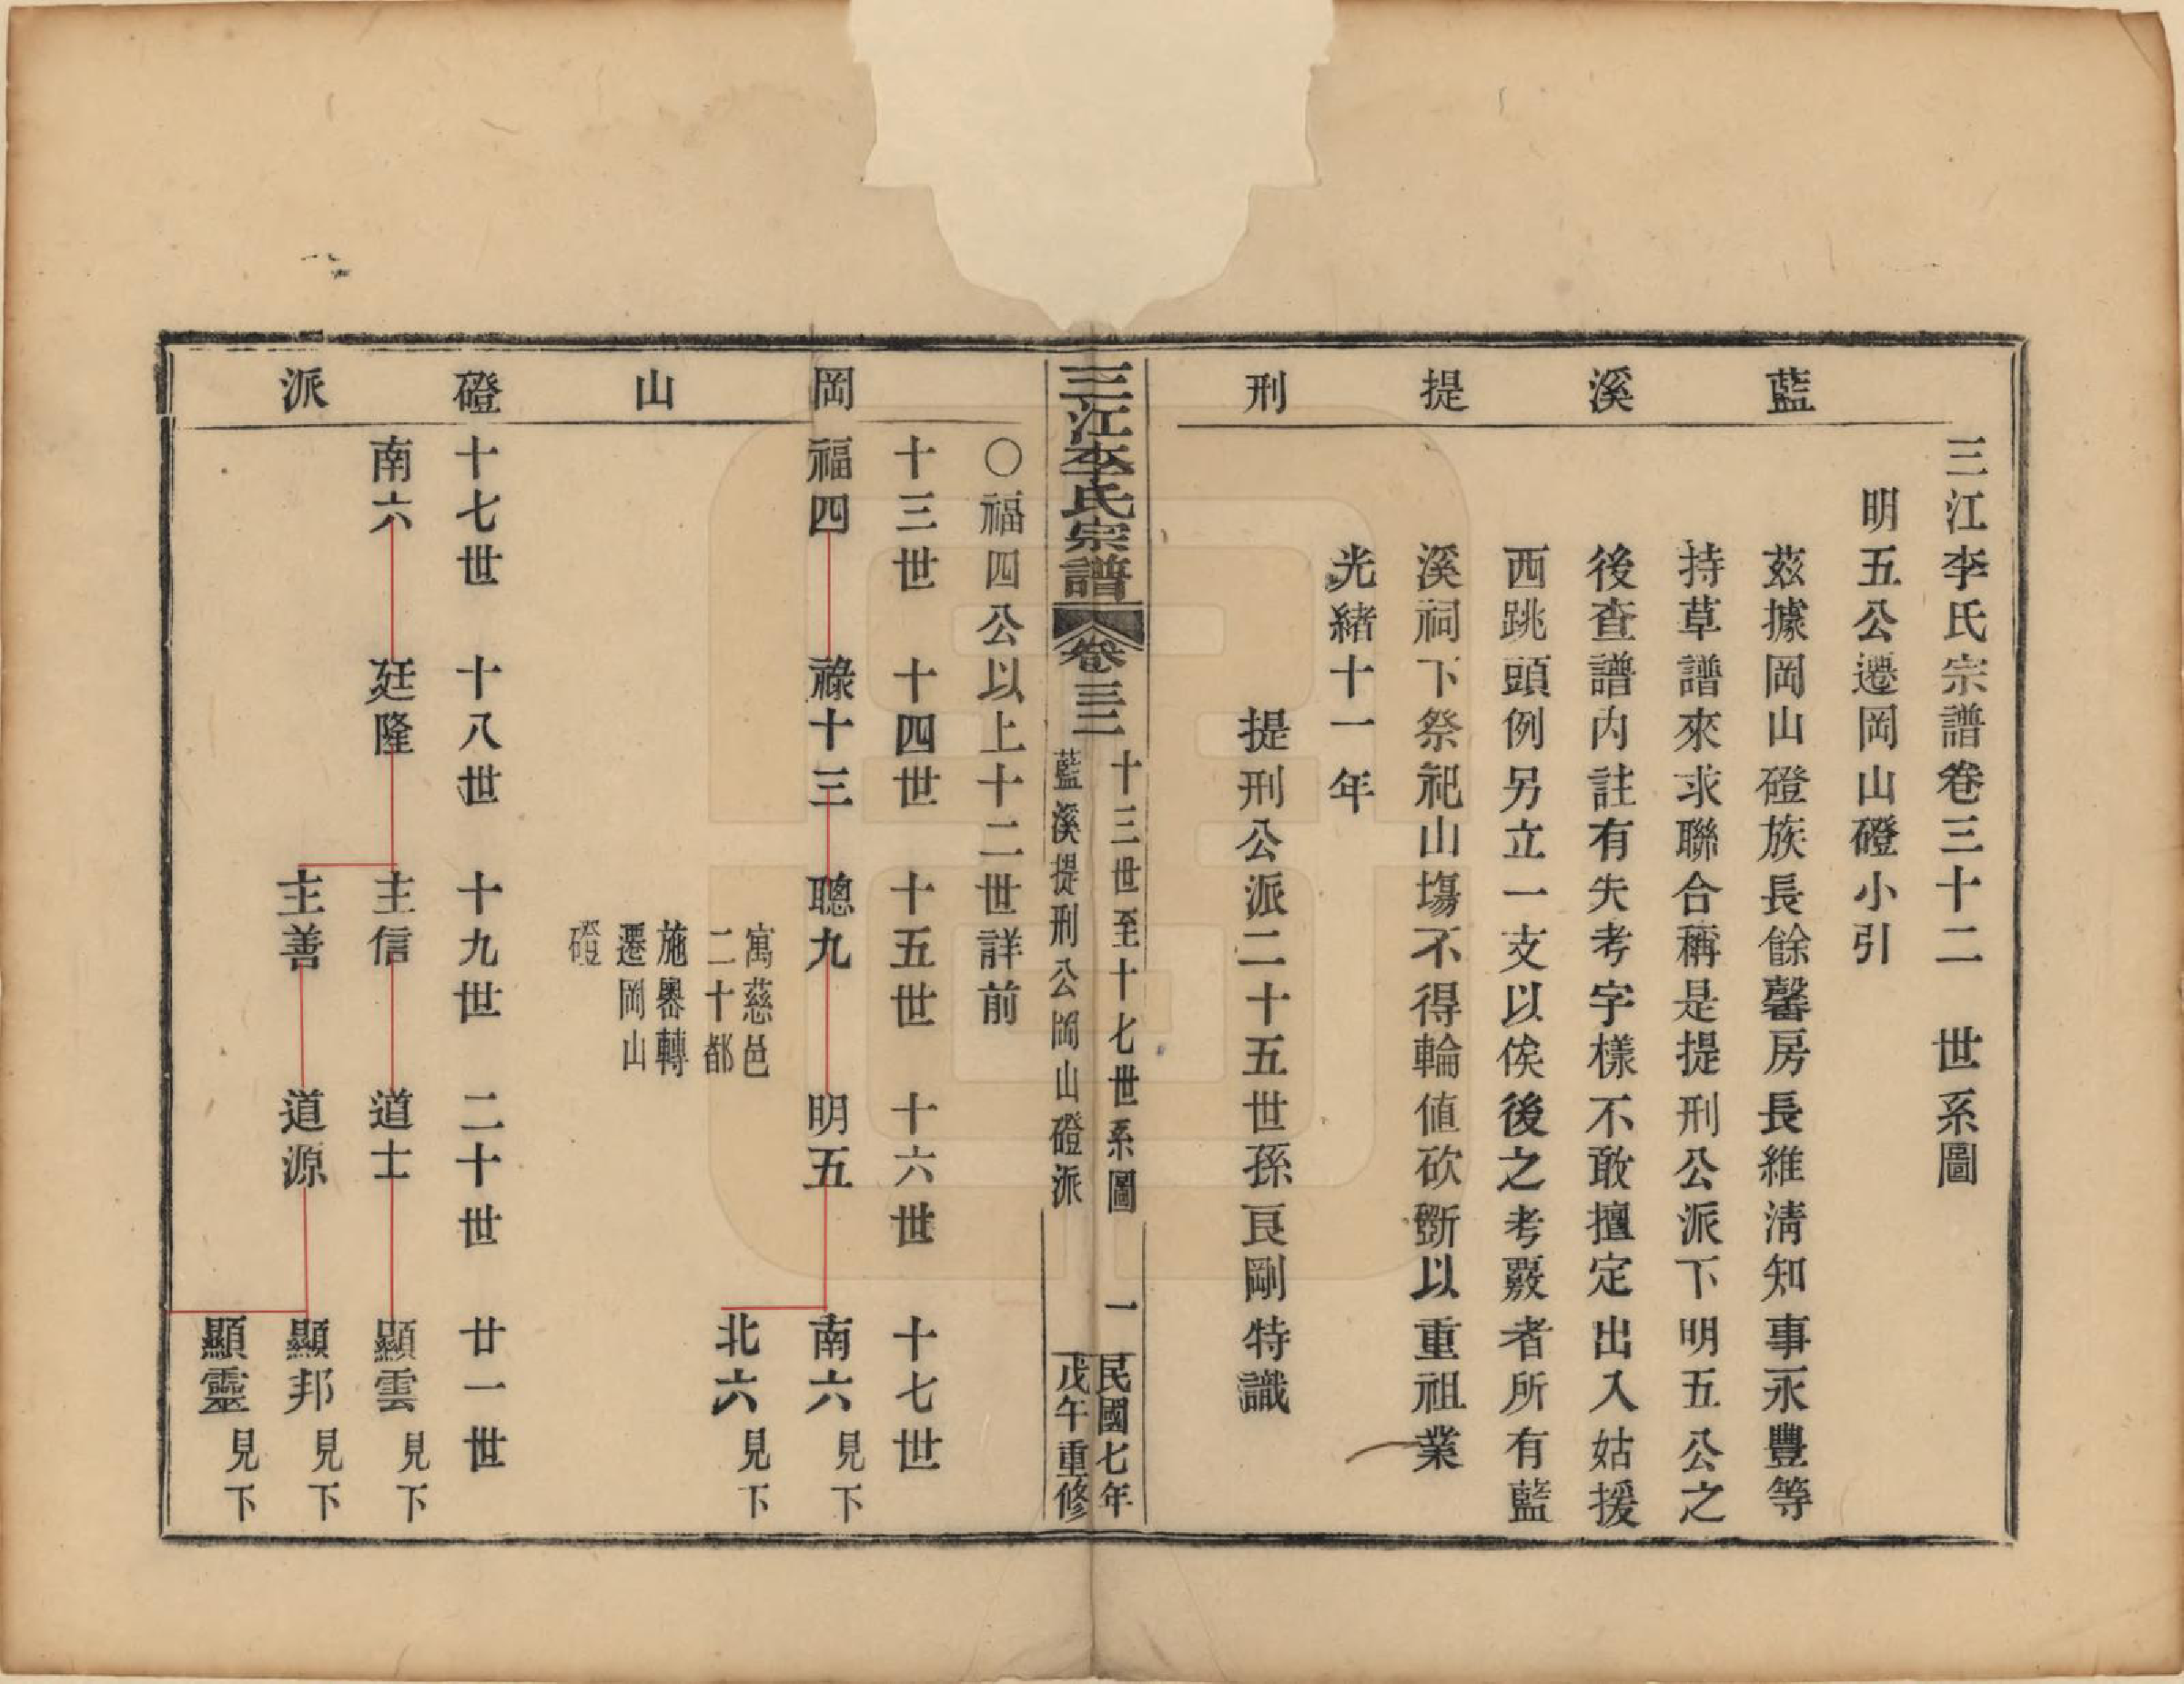 藍溪提刑
三江李氏宗譜卷三十二　世系圖
明五公遷岡山磴小引
茲據岡山磴族長餘馨房長維清知事永豐等
持草譜來求聯合稱是提刑公派下明五公之
後查譜内註有失考字樣不敢擅定出入姑援
西跳頭例另立一支以俟後之考覈者所有藍
溪祠下祭祀山塲不得輪值砍斵以重祖業
光緒十一年
提刑公派二十五世孫良剛特識
三江李氏宗譜
卷三十二
十三世至十七世系圖
藍溪提刑公岡山磴派
一
民國七年
戊午重修
岡山磴派
〇福四公以上十二世詳前
十三世　十四世　十五世　十六世　十七世
福四　祿十三　聰九　明五　南六　見下
寓慈邑
二十都
施嶴轉
遷岡山
磴
北六　見下
十七世　十八世　十九世　二十世　廿一世
南六　廷隆　主信　道士　顯雲　見下
主善　道源　顯邦　見下
顯靈　見下